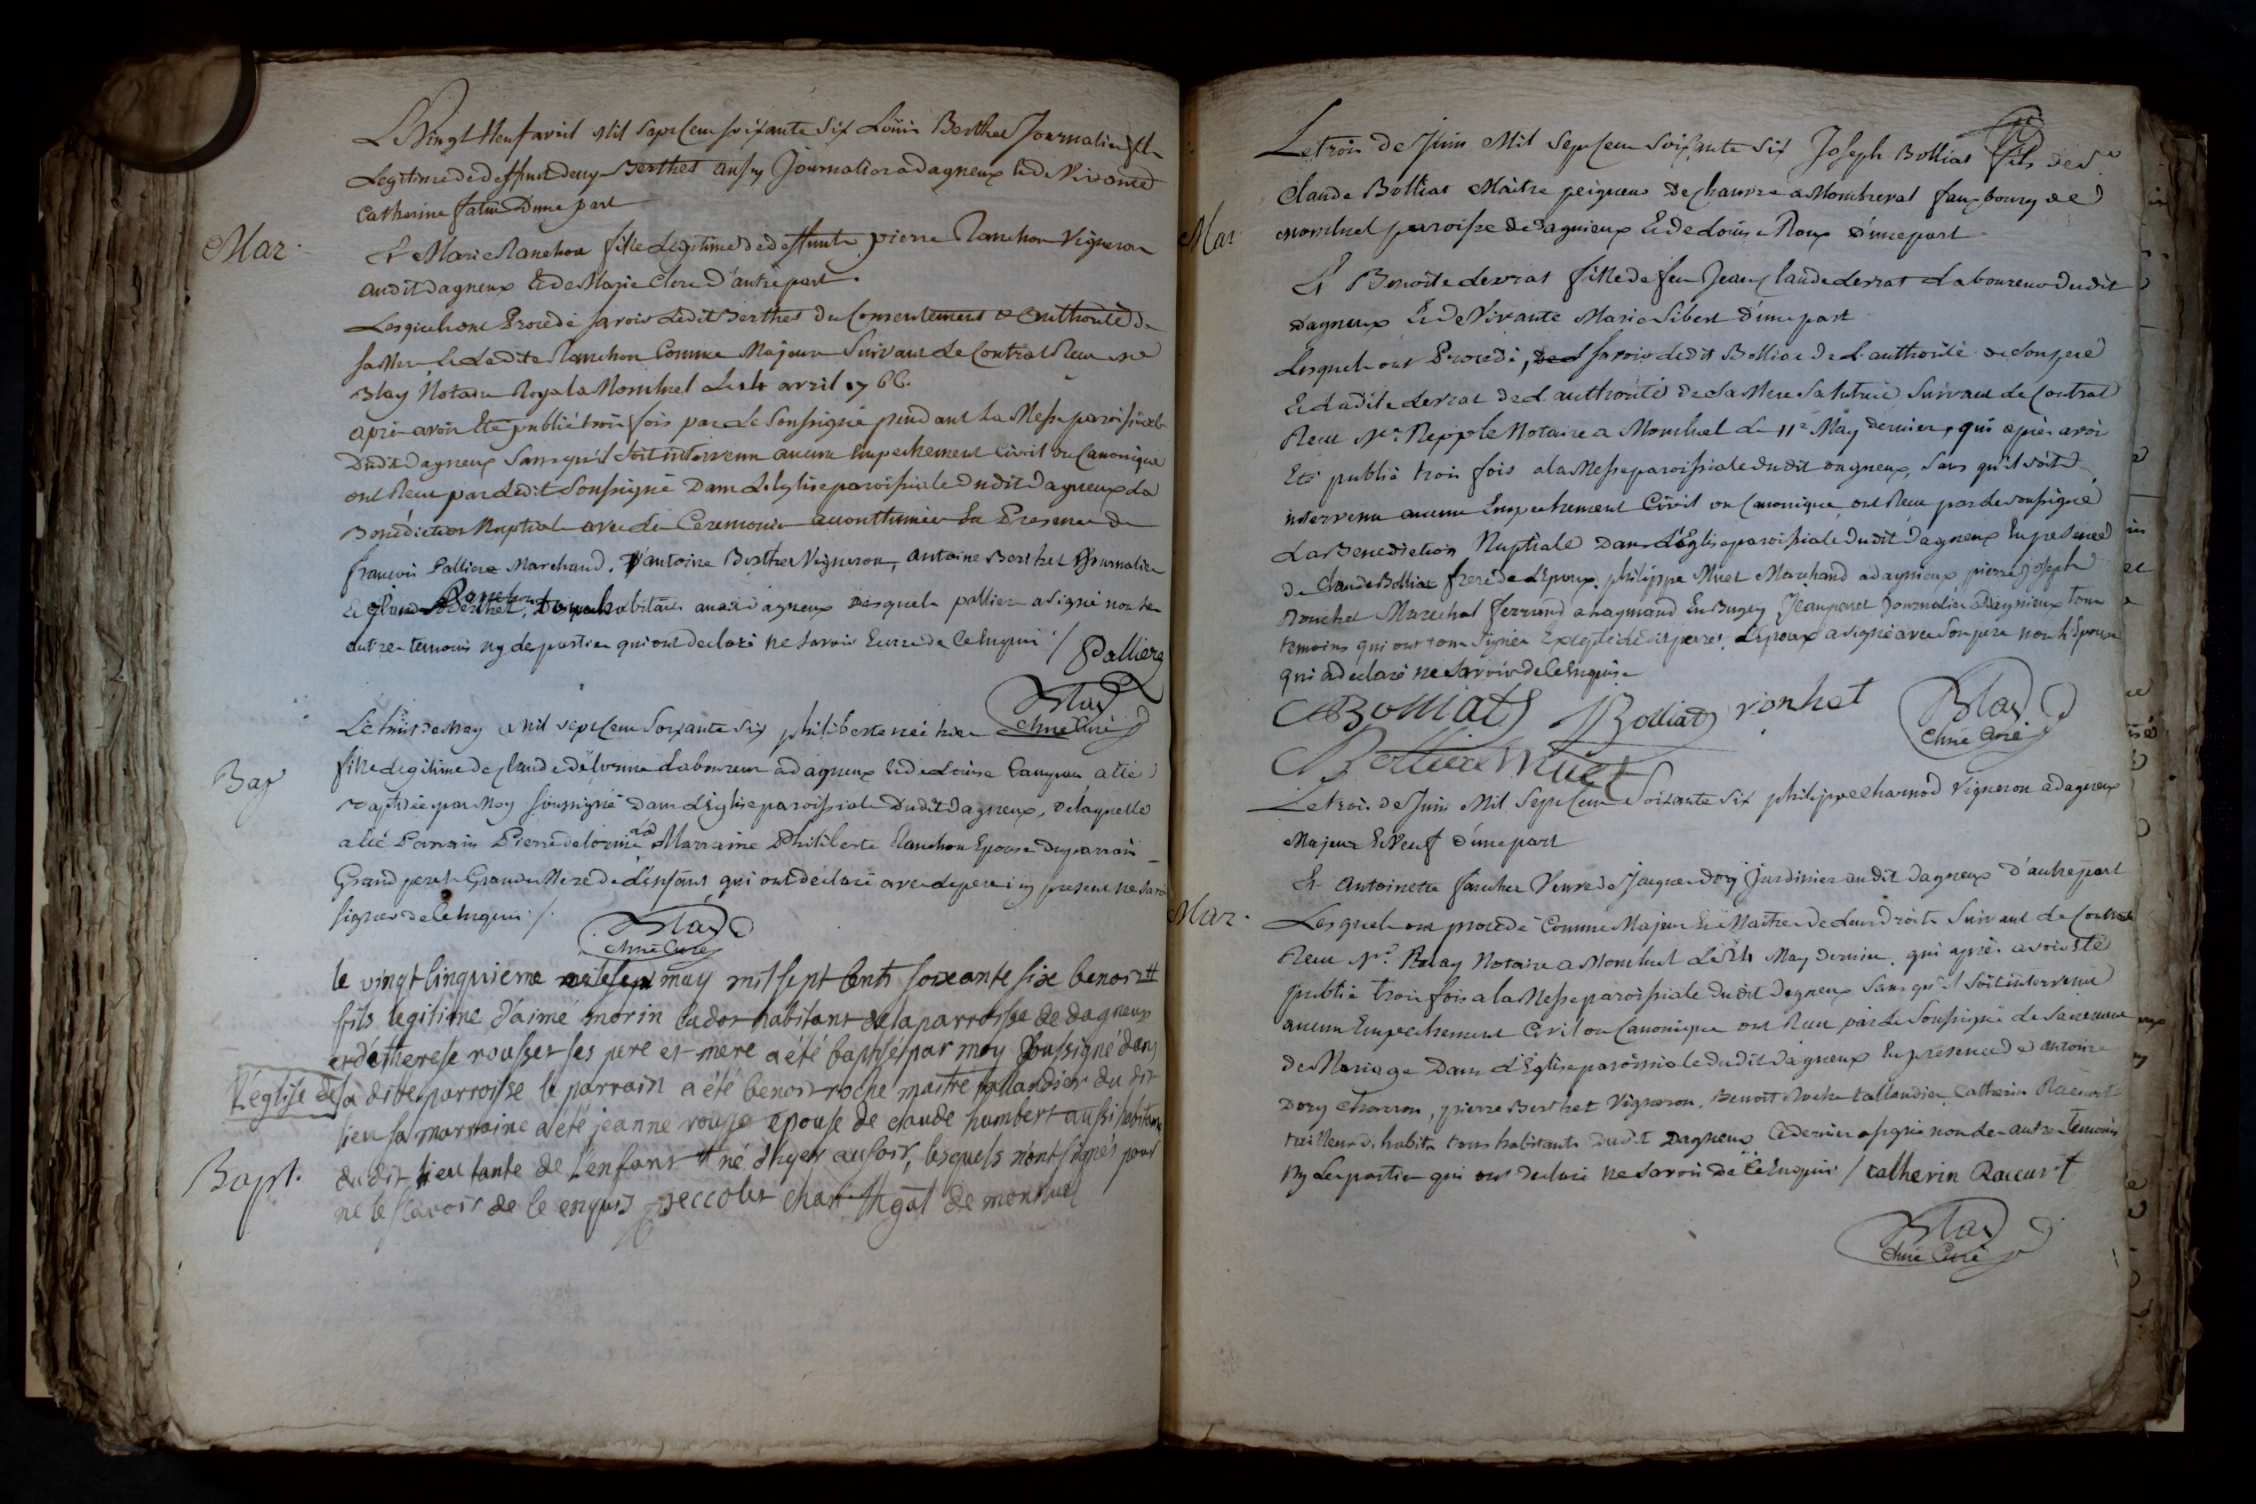 Le Vingt Neuf avril Mil Sept Cens soixante Six Loüis Berthet Journalier fils
Legitime de deffunt Berthet aussy Journalier a dagneux Et de Vivante
Catherine d'une part
Mar.
Et Marie Ranchon fille Legitime de deffunt pierre Ranchon Vigneron
audit dagneux Et de Marie Clere d'autre part.
Lesquels ont Procedé savoir Ledit Berthet du Consentement & authorité de
sa Mere Et Ladite Ranchon Comme Majeure Suivant Le Contrat Receu me
Blay Notaire Royal a Montluel Le avril 1766.
après avoir Eté publié trois fois par Le Soussigné pendant La Messe paroissiale
Dudit Dagneux Sans qu'il soit intervenu aucun Empechement Civil ou Canonique
ont Receu par Ledit Soussigné Dans L'Eglise paroissiale Dudit Dagneux La
Benédiction Nuptiale avec Les Ceremonies accoutumées En Presence de
francois Palliere Marchand, d'antoine Berthet Vigneron, antoine Berthet Journalier
Ranchon
Et habitans audit dagneux Desquels pallier a signé non les
autres temoins ny les parties qui ont declaré ne savoir Ecrire de ce Enquis /. Palliere
Blay
Chne Curé
Le huit de May Mil sept Cens Soixante Six philiberte née hier
Bap
fille Legitime de Claude delorme Laboureur a dagneux Et de Loüise a Eté
Baptisée par Moy soussigné Dans L'Eglise paroissiale Dudit Dagneux, De laquelle
a Eté Parrain Pierre delorme Marraine Philiberte Ranchon Epouse du parrain
Grand pere & Grande Mere de L'enfant qui ont declaré avec le pere icy present ne savoir
signer de ce Enquis /.
Blay
Chne Curé
le vingt cinquieme may mil sept cents soixante six benoit
fils legitime d'aimé morin habitant de la parroisse de dagneux
et de therese rousset ses pere et mere a été baptisé par moy soussigné dans
l'eglise de la ditte parroisse le parrain a été benoit roche maitre tallandier du dit
lieu sa marraine a été jeanne epouse de claude humbert aussi habitante
Bapt.
du dit lieu tante de l'enfant né d'hyer au soir, lesquels n'ont signés pour
ne le scavoir de ce enquis peccolet de montluel
Le trois de Juin Mil Sept Cens Soixante Six Joseph Bolliat fils de Sr
Claude Bolliat Maitre peigneur De Chanvre a Montreval fauxbourg de
Mar
Montluel paroisse de dagnieux Et de Louise Roux D'une part
Et Benoite Levrat fille de feu Jean Claude Levrat Laboureur dudit
dagneux Et de Vivante Marie Sibert d'une part
Lesquels ont Procedé, savoir Ledit Bolliat De L'authorité de son pere
Et Ladite Levrat de L'authorité de Sa Mere Sa tutrice Suivant Le Contrat
Receu Mr. Reppele Notaire a Montluel Le 11e May Dernier, qui après avoir
Eté publié trois fois a la Messe paroissiale du dit dagneux, sans qu'il soit
intervenu aucun Empechement Civil ou Canonique ont Receu par Le soussigné
La Benediction Nuptiale Dans L'Eglise paroissiale Du dit Dagneux En presence
de Claude Bolliat frere de L'Epoux, philippe Muet Marchand a dagnieux pierre joseph
Ronchet Marechal ferrand a Lagnieu En Bugey Jean perret Journalier a dagnieux Tous
temoins qui ont tous signé Excepté Ledit perret, L'epoux a signé avec Son pere non L'Epouse
qui a declaré ne savoir de ce Enquise
CBolliat JBolliat ronhet Blay
Chne Curé
Bolliat Muet
Le trois de Juin Mil Sept Cens Soixante Six philippe Charnod Vigneron a dagneux
Majeur Et Veuf d'une part
Et Antoinette fanchet Veuve de Jaque Dory Jardinier au dit Dagneux D'autre part
Mar.
Lesquels ont procedé Comme Majeurs Et Maitres De Leurs droits Suivant Le Contrat
Receu Mr. Notaire a Montluel Le May dernier, qui après avoir Eté
publié trois fois a la Messe paroissiale du dit Dagneux Sans qu'il soit intervenu
aucun Empechement Civil ou Canonique ont Receu par Le Soussigné Le Sacrement
de Mariage Dans L'Eglise paroissiale du dit Dagneux En presence d'antoine
Dory Charron, pierre Berthet Vigneron, Benoit Roche tallandier, Catherin Racurt
tailleur d'habits tous habitants du dit Dagneux Ce dernier a signé non les autres temoins
Ny Les parties qui ont declaré ne savoir de ce Enquis / Catherin Racurt
Blay
Chne Curé